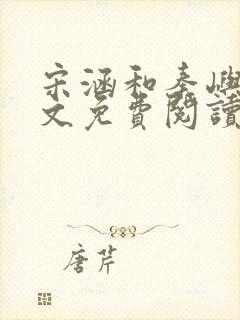 宋涵和秦嶼
文免費閱讀
唐芹